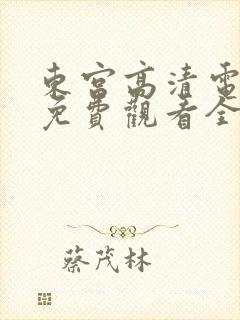 東宮高清電
免費觀看全
蔡茂林